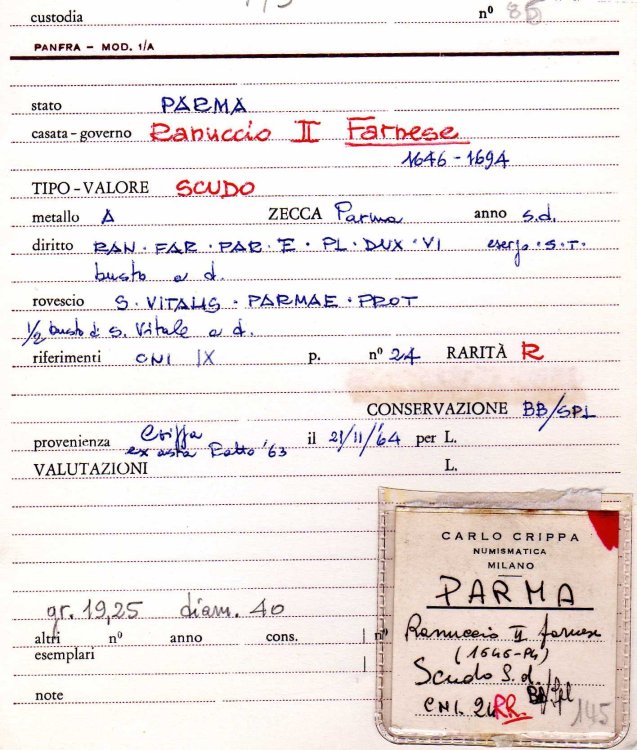 custodia nº 85
PANFRA – MOD. 1/A
stato PARMA
casata-governo Ranuccio II Farnese
1646-1694
TIPO-VALORE SCUDO
metallo A ZECCA Parma anno s.d.
diritto RAN·FAR·PAR·E·PL·DUX·VI esergo·S.T.
busto a d.
rovescio S·VITALIS·PARMAE·PROT
1/2 busto di S. Vitale a d.
riferimenti CNI IX p. nº 24 RARITÀ R
CONSERVAZIONE BB/SPL
provenienza Crippa il 21/11/'64 per L.
ex asta Ratto '63
VALUTAZIONI L.
gr. 19,25 diam. 40
altri nº anno cons. nº
esemplari
note
CARLO CRIPPA
NUMISMATICA
MILANO
PARMA
Ranuccio II farnese
(1646-94)
Scudo S.d.
BB/Spl
CNI. 24 RR. 145